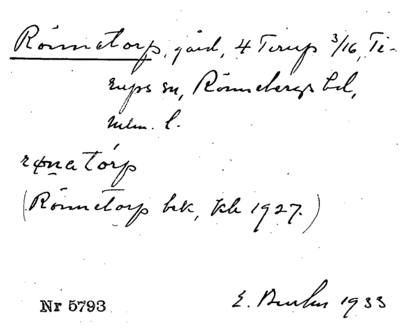 Rönnetorp, gård, 4 Tirup 3/16, Ti-
rups sn, Rönnebergs hd,
Mlm. l.
rønatórp
(Rönnetorp brk, Kb 1927.)
Nr 5793 E. 1933